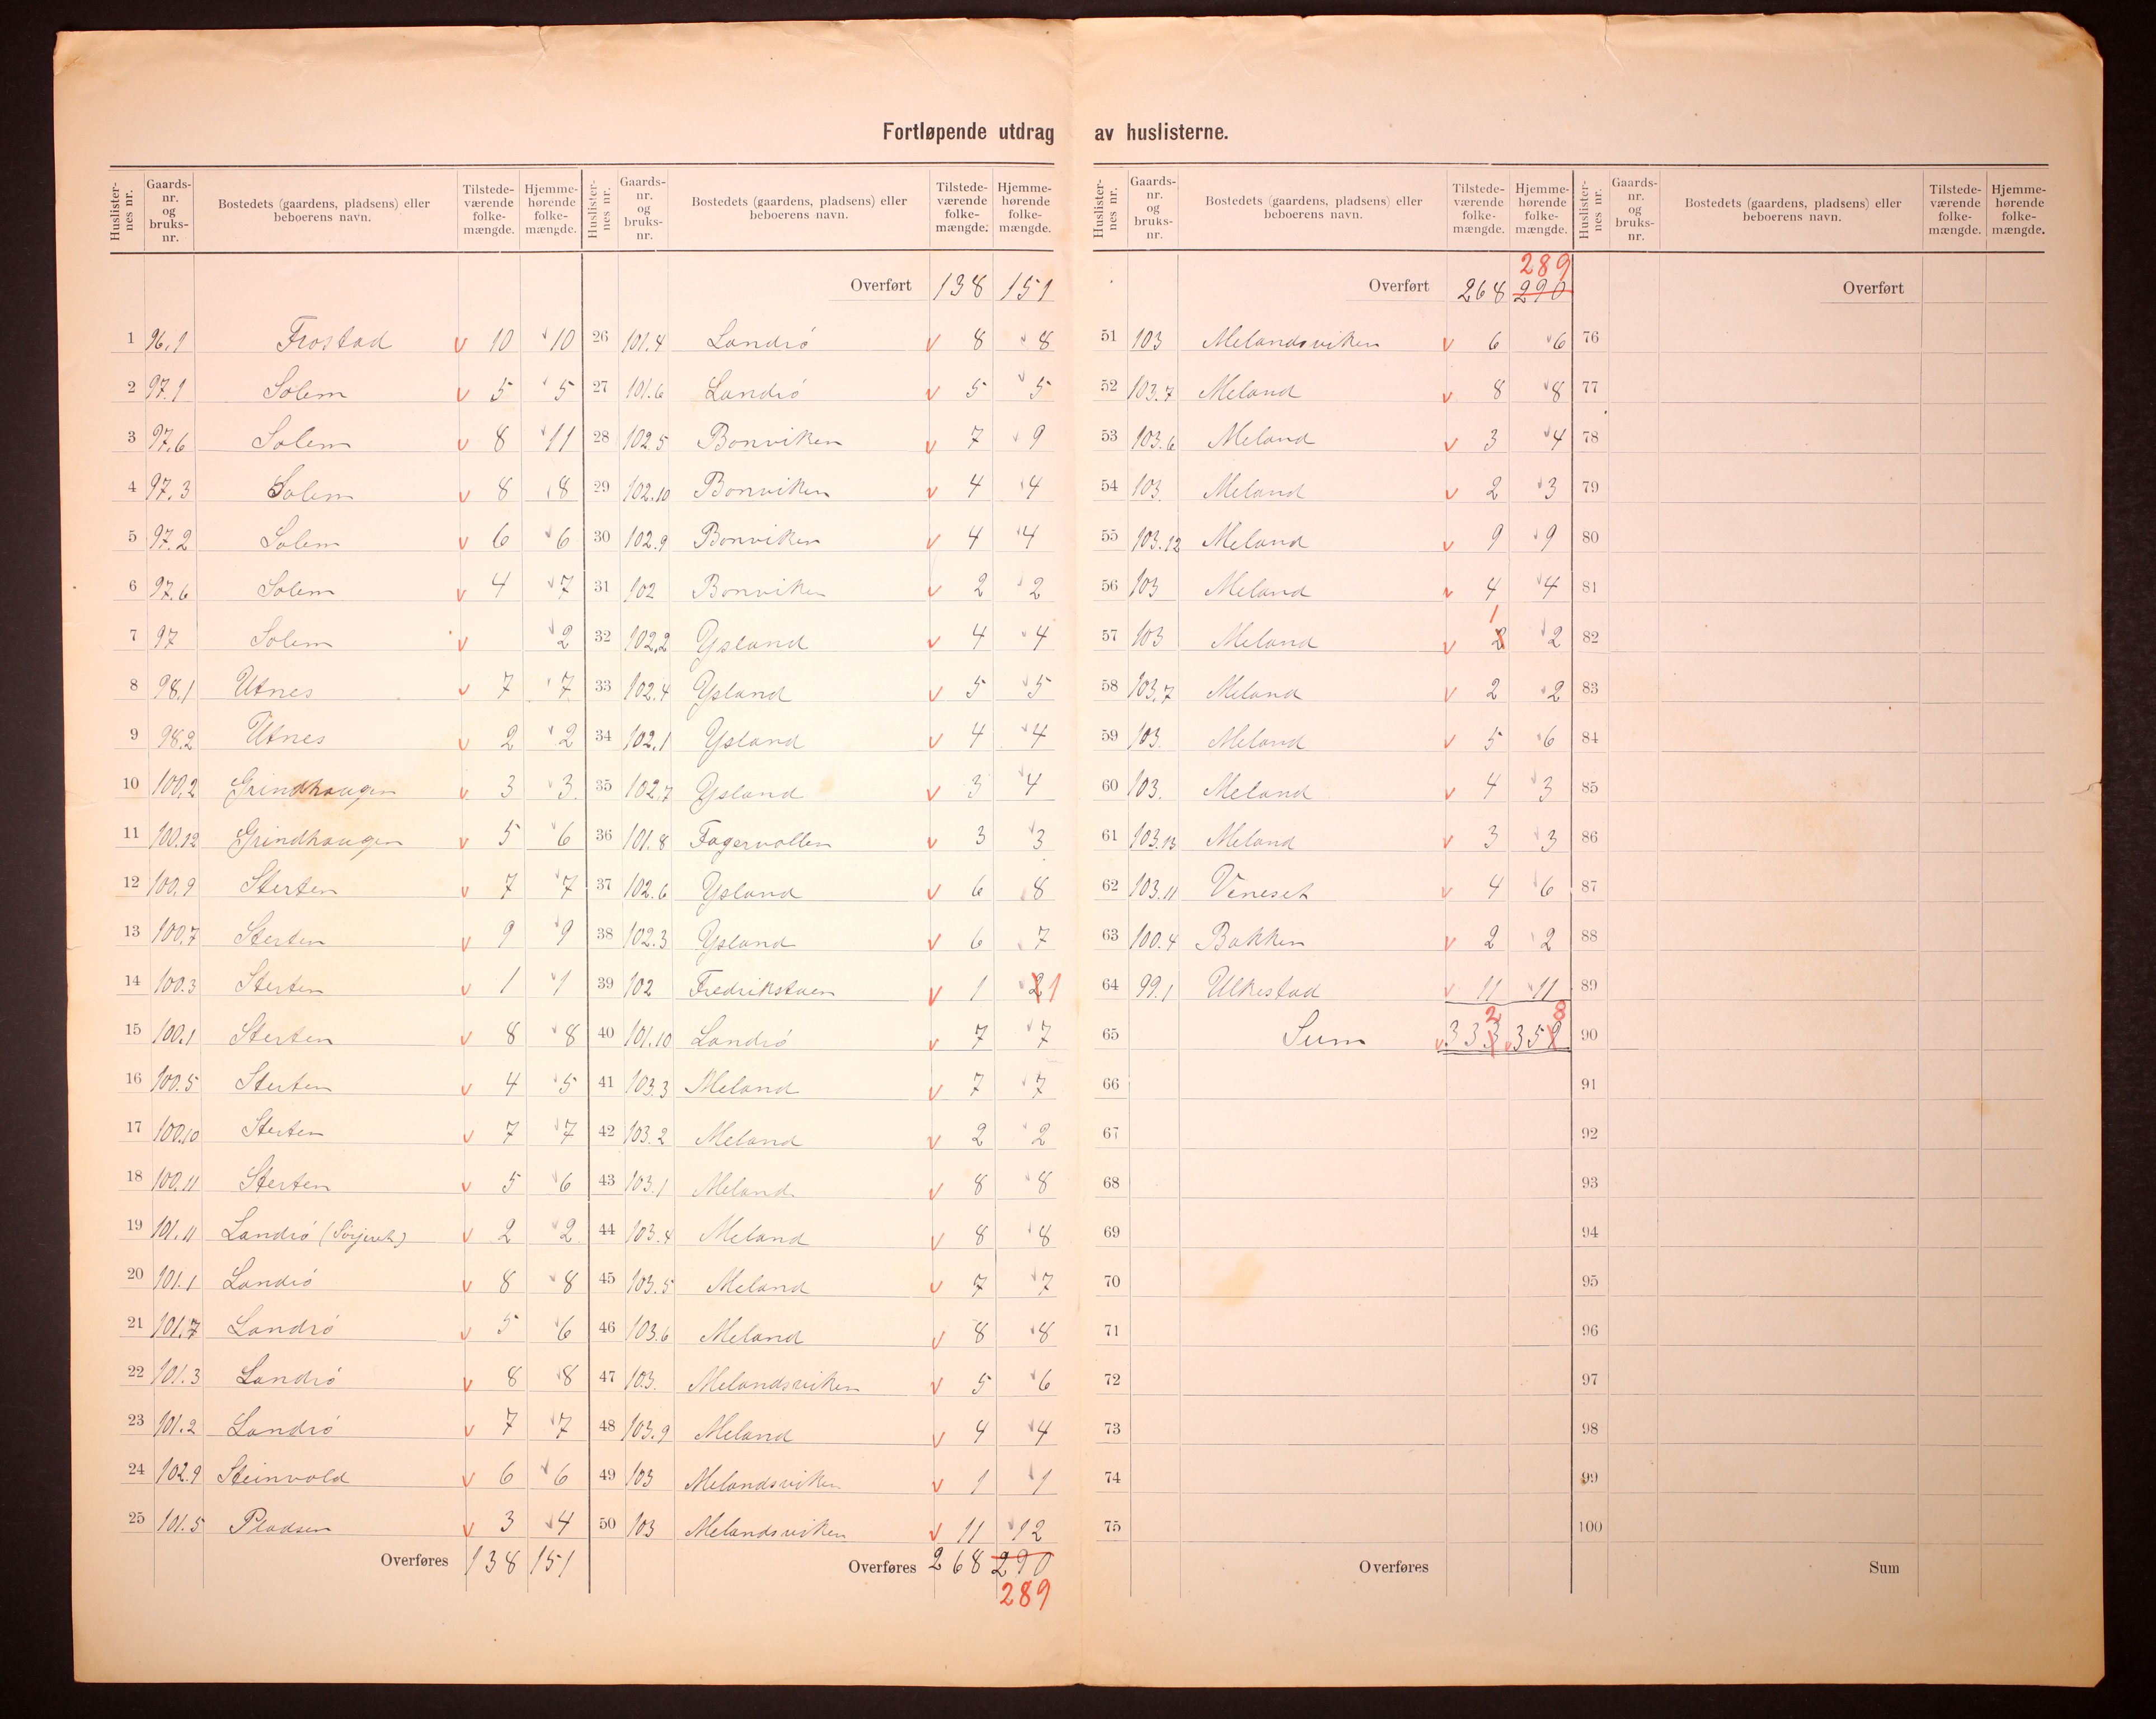 Fortløpende utdrag av huslisterne.
Huslisternes nr. Gaardsnr. og bruksnr. Bostedets (gaardens, pladsens) eller beboerens navn. Tilstedeværende folkemængde. Hjemmehørende folkemængde.
1 96.1 Frostad v 10 v 10
2 97.1 Solem v 5 v 5
3 97.6 Solem v 8 v 11
4 97.3 Solem v 8 v 8
5 97.2 Solem v 6 v 6
6 97.6 Solem v 4 v 7
7 97 Solem v v 2
8 98.1 Utnes v 7 v 7
9 98.2 Utnes v 2 v 2
10 100.2 Grindhaugen v 3 v 3
11 100.12 Grindhaugen v 5 v 6
12 100.9 Sterten v 7 v 7
13 100.7 Sterten v 9 v 9
14 100.3 Sterten v 1 v 1
15 100.1 Sterten v 8 v 8
16 100.5 Sterten v 4 v 5
17 100.10 Sterten v 7 v 7
18 100.11 Sterten v 5 v 6
19 101.11 Landrö v 2 v 2
20 101.1 Landrö v 8 v 8
21 101.7 Landrö v 5 v 6
22 101.3 Landrö v 8 v 8
23 101.2 Landrö v 7 v 7
24 102.9 Steinvold v 6 v 6
25 101.5 Pladsen v 3 v 4
Overføres 138 151
Huslisternes nr. Gaardsnr. og bruksnr. Bostedets (gaardens, pladsens) eller beboerens navn. Tilstedeværende folkemængde. Hjemmehørende folkemængde.
Overført 138 151
26 101.4 Landrö v 8 v 8
27 101.6 Landrö v 5 v 5
28 102.5 Bonviken v 7 v 9
29 102.10 Bonviken v 4 v 4
30 102.9 Bonviken v 4 v 4
31 102 Bonviken v 2 v 2
32 102.2 Ysland v 4 v 4
33 102.4 Ysland v 5 v 5
34 102.1 Ysland v 4 v 4
35 102.7 Ysland v 3 v 4
36 101.8 Fagervollen v 3 v 3
37 102.6 Ysland v 6 v 8
38 102.3 Ysland v 6 v 7
39 102 Fredrikstuen v 1 v 2 1
40 101.10 Landrö v 7 v 7
41 103.3 Meland v 7 v 7
42 103.2 Meland v 2 v 2
43 103.1 Meland v 8 v 8
44 103.4 Meland v 8 v 8
45 103.5 Meland v 7 v 7
46 103.6 Meland v 8 v 8
47 103. Melandsviken v 5 v 6
48 103.9 Meland v 4 v 4
49 103 Melandsviken v 1 v 1
50 103 Melandsviken v 11 v 12
Overføres 268 290
289
Huslisternes nr. Gaardsnr. og bruksnr. Bostedets (gaardens, pladsens) eller beboerens navn. Tilstedeværende folkemængde. Hjemmehørende folkemængde.
289
Overført 268 290
51 103 Melandsviken v 6 v 6
52 103.7 Meland v 8 v 8
53 103.6 Meland v 3 v 4
54 103. Meland v 2 v 3
55 103.12 Meland v 9 v 9
56 103 Meland v 4 v 4
57 103 Meland v 2 1 v 2
58 103.7 Meland v 2 v 2
59 103. Meland v 5 v 6
60 103. Meland v 4 v 3
61 103.13 Meland v 3 v 3
62 103.11 Veneset v 4 v 6
63 100.4 Bakken v 2 v 2
64 99.1 Ulkestad v 11 v 11
2 8
65 Sum v 333 v 359
66
67
68
69
70
71
72
73
74
75
Overføres
Huslisternes nr. Gaardsnr. og bruksnr. Bostedets (gaardens, pladsens) eller beboerens navn. Tilstedeværende folkemængde. Hjemmehørende folkemængde.
Overført
76
77
78
79
80
81
82
83
84
85
86
87
88
89
90
91
92
93
94
95
96
97
98
99
100
Sum